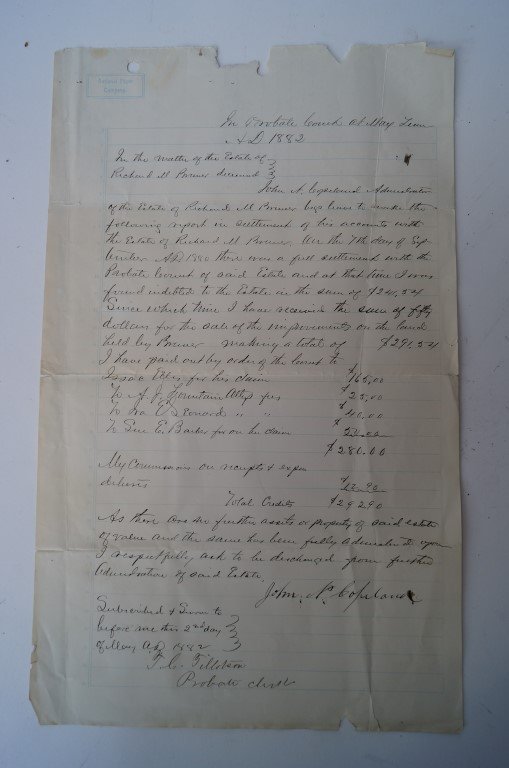 National Paper
Company
In Probate Court at May Term
A.D 1882
In the matter of the Estate of
Richard M deceased
John N. Copeland Administrator
of the Estate of Richard M begs leave to make this
following report in settlement of his accounts with
the Estate of Richard M On the 7th day of Sep
tember A.D 1880 there was a full settlement with the
Probate Court of said Estate and at that time I was
found indebted to the Estate in the sum of $241,54
Since which time I have received the sum of fifty
dollars for the sale of the improvements on the land
held by making a total of $291,54
I have paid out by order of the Court to
Isaac for his claim $165,00
To J. J. Fountain Atty fees $25,00
To Leonard " " $40,00
To Geo E. Barber for on his claim $50,00
$280.00
My Commissions on receipts & expen
ditures $12.90
Total Credits $292.90
As there are no further assets or property of said estate
of value and the same has been fully administered upon
I respectfully ask to be discharged from further
Administration of said Estate
John N. Copeland
Subscribed & Sworn to
before me this 2nd day
of May A.D 1882
T. C. Tillotson
Probate clerk